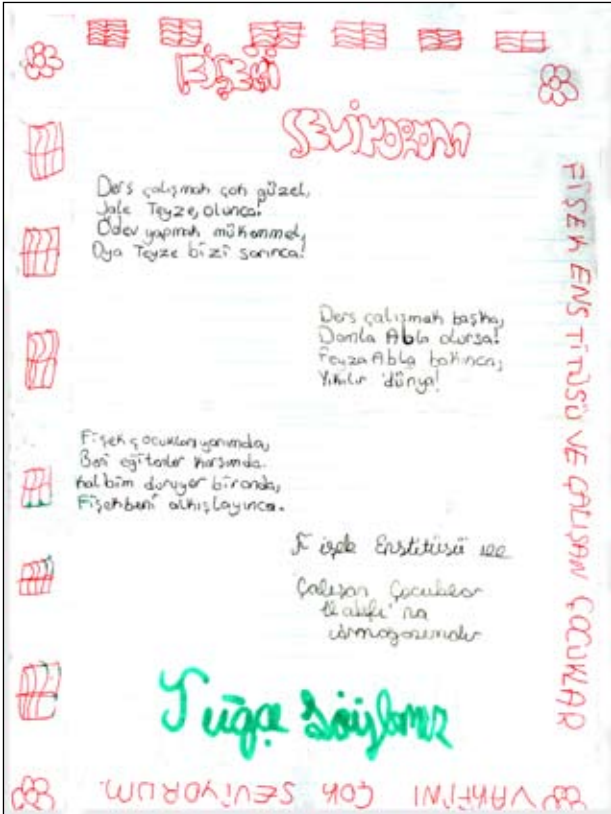 FİŞEĞİ
SEVİYORUM
Ders çalışmak çok güzel,
Jale Teyze, olunca!
Ödev yapmak mükemmel,
Oya Teyze bizi sarınca!
Ders çalışmak başka,
Damla Abla olursa!
Feyza Abla bakınca,
Yıkılır dünya!
Fişek çocukları yanımda,
Beni eğitenler karşımda.
Kalbim duruyor bir anda,
Fişek beni alkışlayınca.
Fişek Enstitüsü ve
Çalışan Çocuklar
Vakfı'na
armağanımdır
Tuğçe
FİŞEK ENSTİTÜSÜ VE ÇALIŞAN ÇOCUKLAR
VAKFINI ÇOK SEVİYORUM.